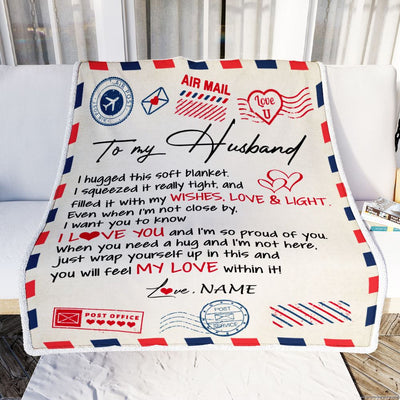 AIR MAIL
AIR POST
Love U
To my Husband
I hugged this soft blanket.
I squeezed it really tight, and
filled it with my WISHES, LOVE & LIGHT.
Even when I'm not close by.
I want you to know
I LOVE YOU and I'm so proud of you.
When you need a hug and I'm not here,
just wrap yourself up in this and
you will feel MY LOVE within it!
Love, NAME
POST OFFICE
POST SERVICE